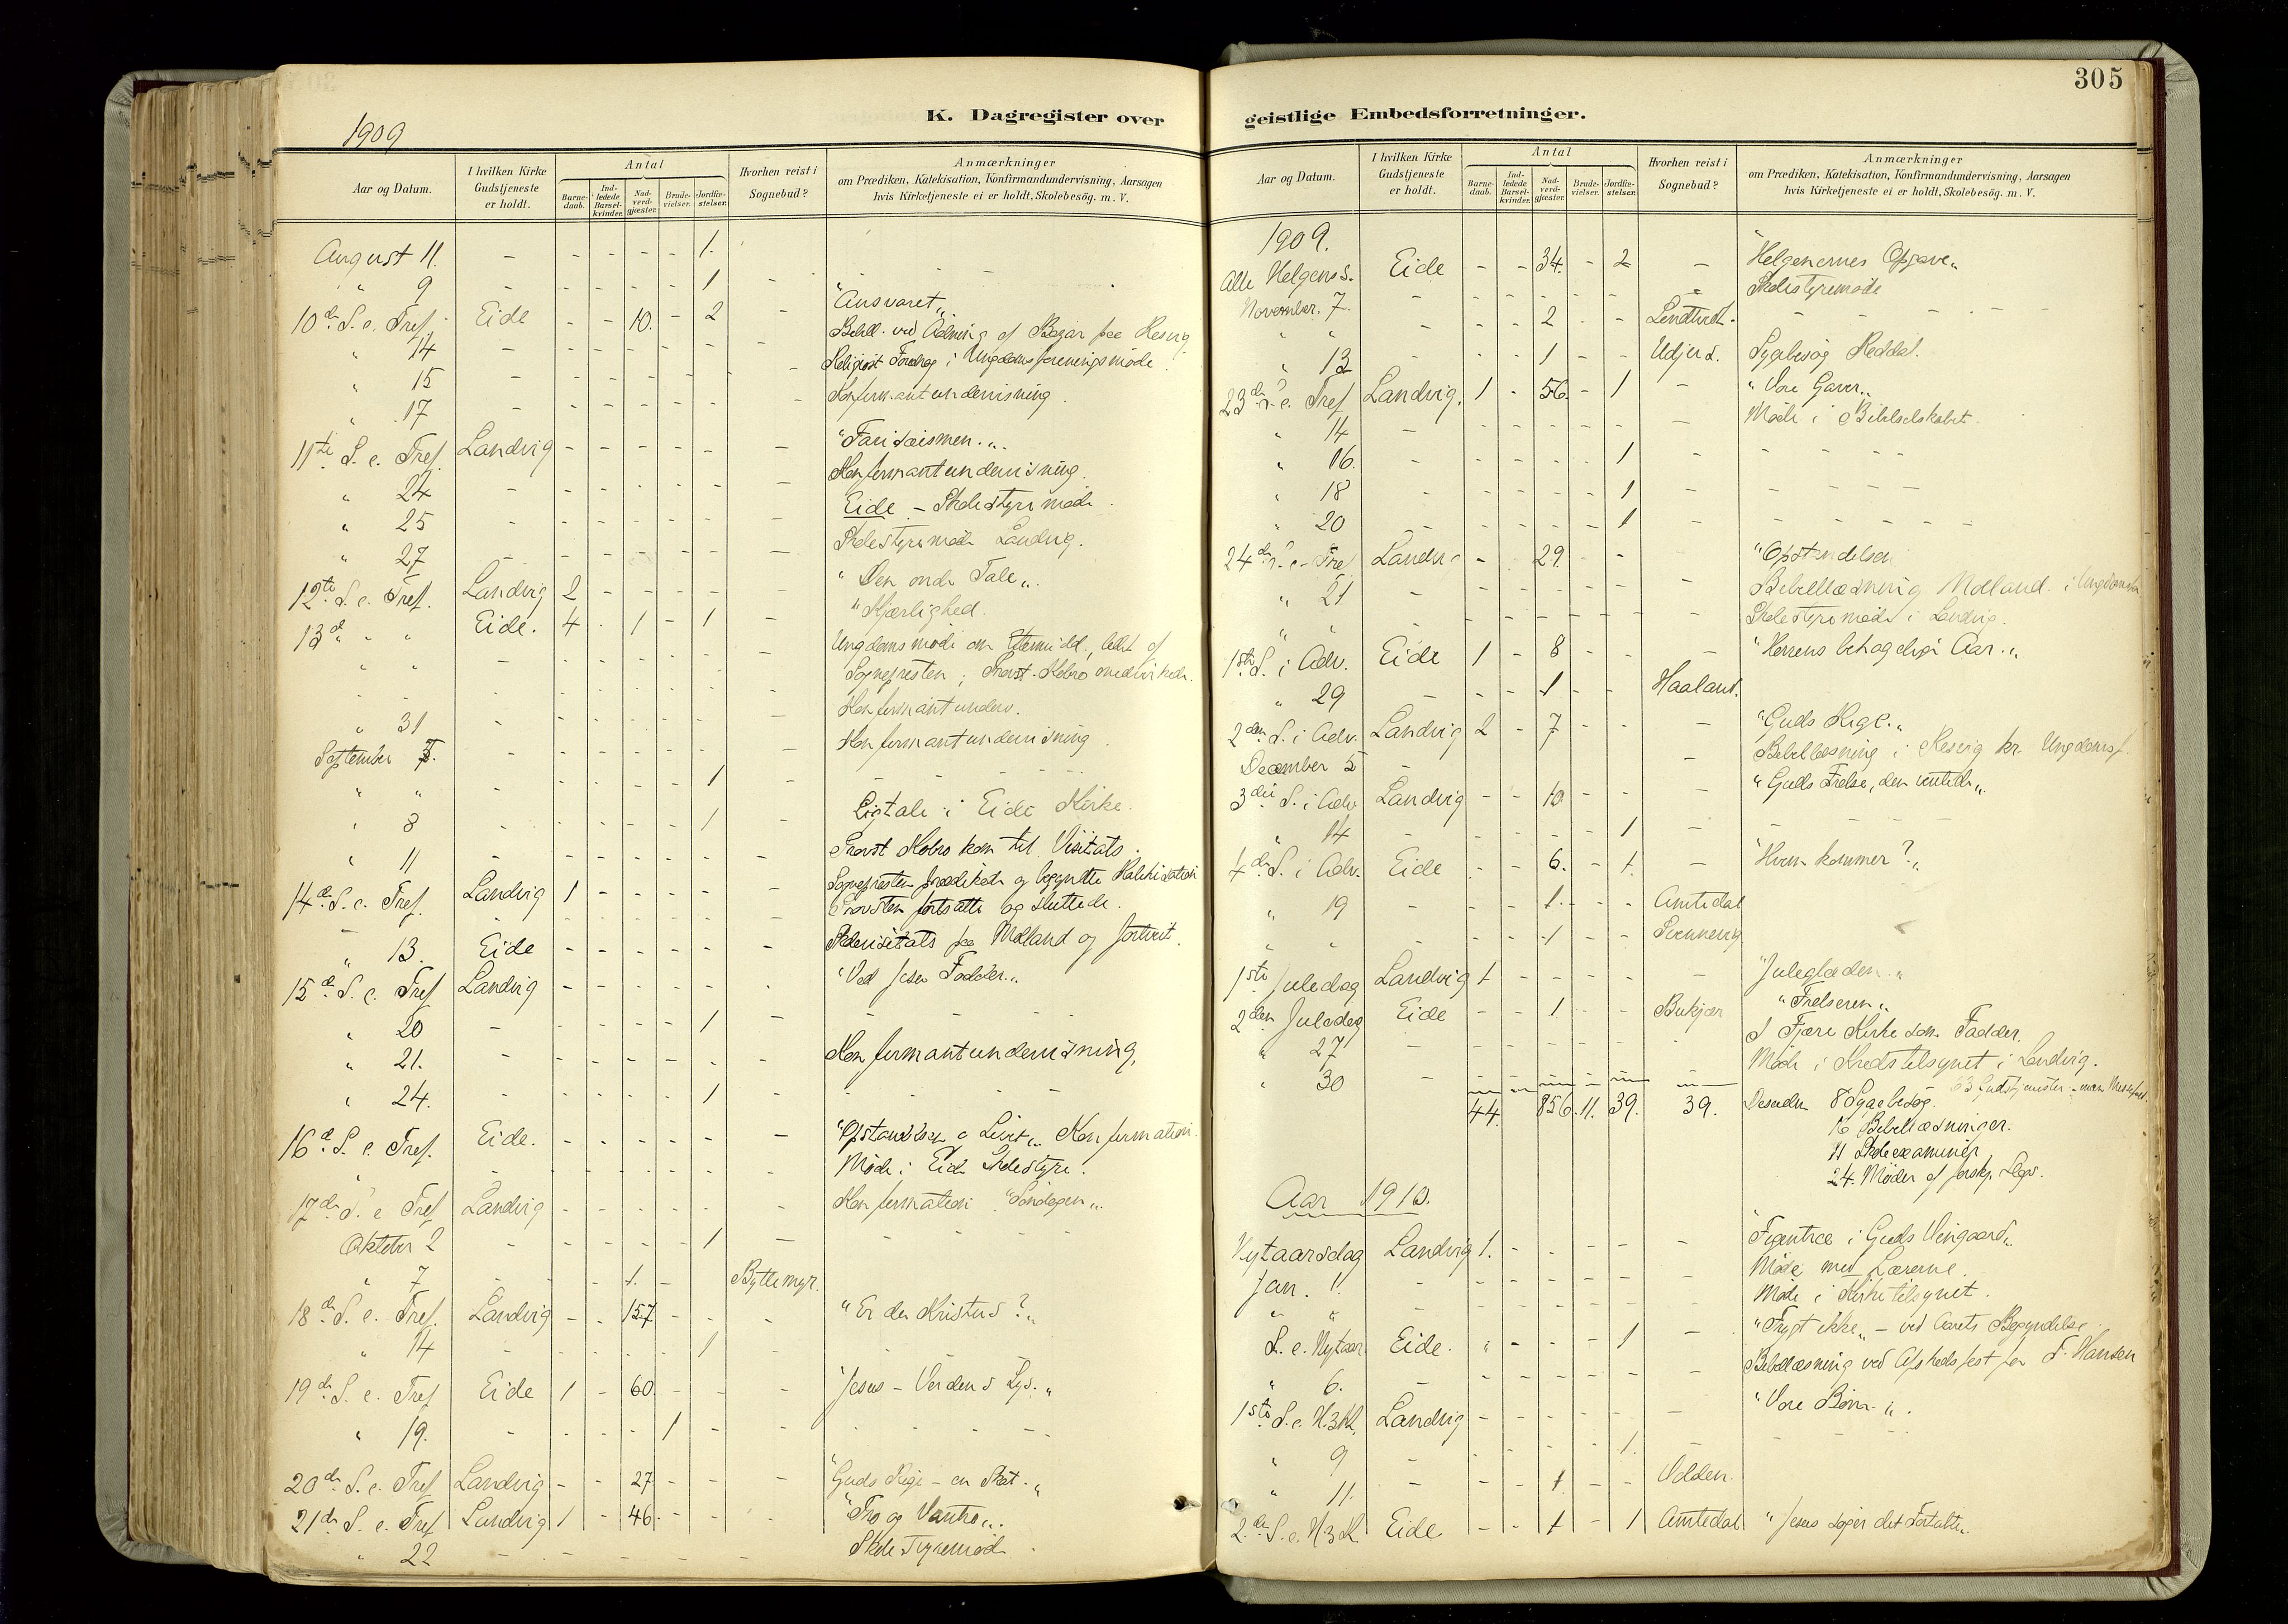 305
K. Dagregister over geistlige Embedsforretninger.
1909
Aar og Datum. I hvilken Kirke Gudstjeneste er holdt. Antal Barnedaab. Indledede Barselkvinder. Nadverdgjæster. Brudevielser. Jordfæstelser. Hvorhen reist i Sognebud? Anmærkninger om Prædiken, Katekisation, Konfirmandundervisning, Aarsagen hvis Kirketjeneste ei er holdt, Skolebesög. m. V.
August 11. - - - - - 1.
" 9 - - - - - 1 -
10de S. e. Tref. Eide - - 10. - 2 "Ansvaret"
" 14 - - - - - - - Bibell. ved Aabning af Bazar paa
" 15 - - - - - - - Religiøst Foredrag i Ungdomsforeningsmøde
" 17 - - - - - - - Konfirmantundervisning.
11te S. e. Tref. Landvig - - - - - - "Farisæismen."
" 24 - - - - - - - Konfirmantundervisning.
" 25 - - - - - - - Eide - Skolestyremøde
" 27 - - - - - - - Skolestyremøde Landvig.
12te S. e. Tref. Landvig 2 - - - - - "Den onde Tale".
13de " " Eide. 4 - 1 - 1 - "Kjærlighed.
" " - - - - - - - Ungdomsmøde om
Sognepresten; Provst Kobro medvirkede.
" 31 - - - - - - - Konfirmantunderv.
September 7. - - - - - - - Konfirmantundervisning.
" " - - - - - 1 -
" 8 - - - - - 1 - Ligtale i Eide Kirke.
" 11 - - - - - - - Provst Kobro kom til Visitats.
14de S. e. Tref. Landvig 1 - - - - - Sognepresten prædikede og begyndte Katekisation
Provsten fortsatte og sluttede.
" 13. Eide - - - - - - Skolevisitats paa Molland og
15de S. e. Tref Landvig - - - - - - "Ved Jesu Fødder."
" 20 - - - - - 1 -
" 21. - - - - - - - Konfirmantundervisning.
" 24. - - - - - 1 -
16de S. e. Tref. Eide. - - - - - - "Opstandelsen o Livet" Konfirmation.
Møde i Eide Skolestyre.
17de S. e Tref Landvig - - - - - Konfirmation "Søndagen"
Oktober 2 - - - - - 1 -
" 7 - - - 1. - Byttemyr.
18de S. e. Tref. Landvig - - 157 - - - "Er der Kristus?"
" 14 - - - - - 1 -
19de S. e. Tref Eide 1 - 60. - - - "Jesus - Verdens Lys."
" 19. - - - - 1 -
20de S. e. Tref Landvig - - 27 - - - "Guds Rige - en Skat."
21de S. e. Tref Landvig 1 - 46. - - - "Tro og Vantro".
" 22 - - - - - - - Skolestyremøde
Aar og Datum. I hvilken Kirke Gudstjeneste er holdt. Antal Barnedaab. Indledede Barselkvinder. Nadverdgjæster. Brudevielser. Jordfæstelser. Hvorhen reist i Sognebud? Anmærkninger om Prædiken, Katekisation, Konfirmandundervisning, Aarsagen hvis Kirketjeneste ei er holdt, Skolebesög. m. V.
1909.
Alle Helgens s. Eide - - 34. - 2 - "Helgenernes Opgave"
November. 7. - - - - - - - Skolestyremøde
" " - - - 2 - - Lendtveit.
" 13 - - - 1 - - Sygebesøg Reddal.
23de S. e. Tref Landvig. 1 - 56. - 1 - "Vore Gaver".
" 14 - - - - - - - Møde i Bibelselskabet.
" 16. - - - - - 1 -
" 18 - - - - - 1 -
" 20 - - - - - 1 -
24de S. e. Tre Landv - - 29. - - "Opstandelsen
" 21 - - - - - - - Bibellæsning Molland i
" " - - - - - - - Skolestyremøde i Landvig.
1ste S. i Adv. Eide 1 - 8 - - - "Herrens behagelige Aar."
" 29 - - - 1 - - Haaland.
2den S. i Adv. Landvig 2 - 7 - - - "Guds Rige."
December 5 - - Bibellæsning i kr. Ungdomsf.
3die S. i Adv Landvig - - 10 - - - "Guds Frelse, den ventede".
" 14 - - - - - 1 -
4de S. i Adv. Eide - - 6. - 1. - "Hvem kommer?"
" 19 - - - 1. - - Amtedal
" " - - - 1 - - Svennevig
1ste Juledag Landvig 1 - - - - - "Juleglæden."
2den Juledag Eide - - 1 - - Bukjær "Frelseren".
" 27 - - - - - - - I Fjære Kirke som Fadder.
" 30 - Møde i Kredstilsynet i Landvig.
44. 856. 11. 39. 39. Desuden 8 Sygebesøg. 63 Gudstjenester
16 Bibellæsninger.
11 Skoleexaminer
24. Møder af forskj. Slags.
Aar 1910.
Nytaarsdag Landvig 1. - - - - - "Figentræ i Guds Vingaard".
Jan. 1. - - - - - - - Møde med Lærerne.
" " - - - - - - - Møde i Kirketilsynet.
S. e. Nytaar Eide. " - - - 1 - "Frygt ikke" - ved Aarets Begyndelse.
" 6. - - - - - - - Bibellæsning ved Afskedsfest for F. Hansen
1ste S. e. H.3K. Landvig - - - - - - "Vore Børn".
" 9 - - - - - 1. -
" 11. - - - 1 - - Udden.
2den S. e. H.3.K Eide - - 1 - 1 Amtedal "Jesus søger det Fortabte".